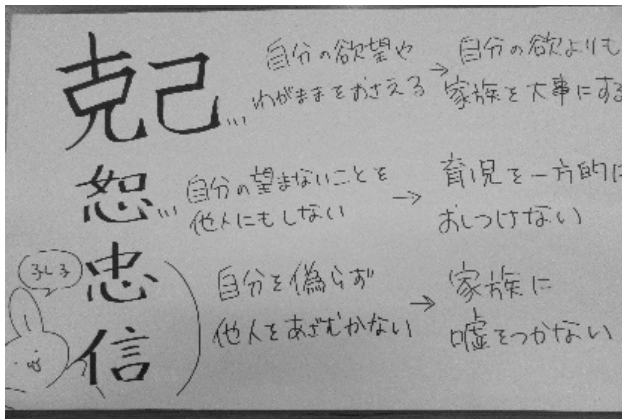 克己… 自分の欲望や
わがままをおさえる → 自分の欲よりも
家族を大事にする
恕… 自分の望まないことを
他人にもしない → 育児を一方的に
おしつけない
忠
信
自分を偽らず
他人をあざむかない → 家族に
嘘をつかない